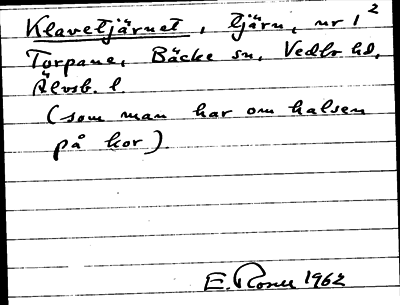 Klavetjärnet, tjärn, nr 1²
Torpane, Bäcke sn, Vedbo hd,
Älvsb. l
(som man har om halsen
på kor).
E. Rosell 1962